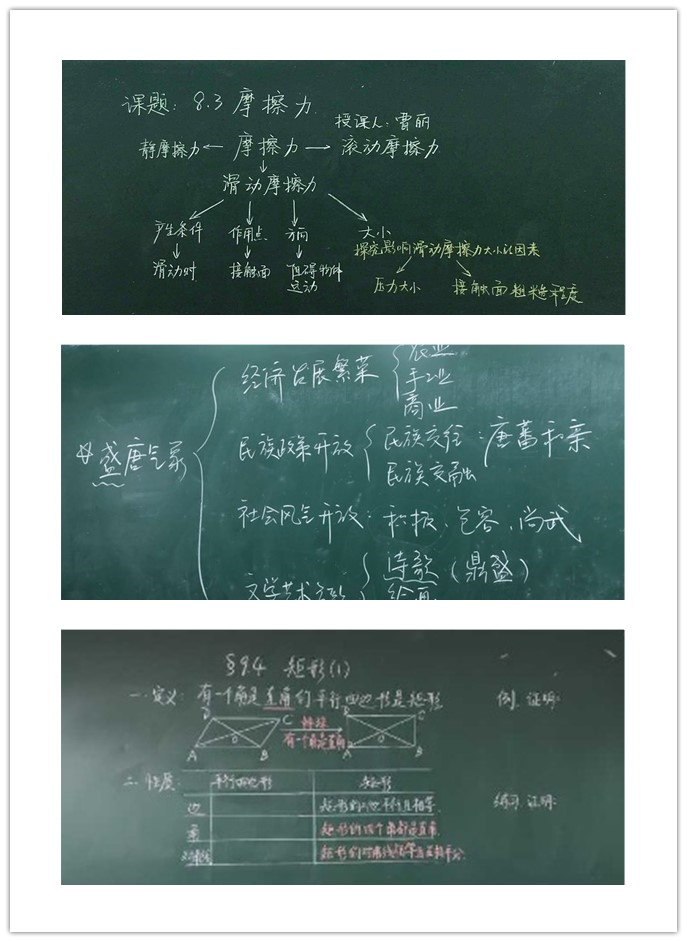 课题: 8.3 摩擦力
授课人: 曹丽
静摩擦力 ← 摩擦力 → 滚动摩擦力
滑动摩擦力
产生条件 作用点 方向 大小
探究影响滑动摩擦力大小的因素
滑动时 接触面 阻碍物体运动 压力大小 接触面粗糙程度
盛唐气象
经济发展繁荣
农业
手工业
商业
民族政策开放
民族交往: 唐蕃和亲
民族交融
社会风气开放: 积极、包容、尚武
文学艺术
诗歌 (鼎盛)
绘画
§9.4 矩形(1)
一.定义: 有一个角是直角的平行四边形是矩形
例. 证明:
D C D C
有一个角是直角
O O
A B A B
二.性质: 平行四边形 矩形
边
角 矩形的四个角都是直角
对角线 矩形的对角线相等且互相平分
练习. 证明: